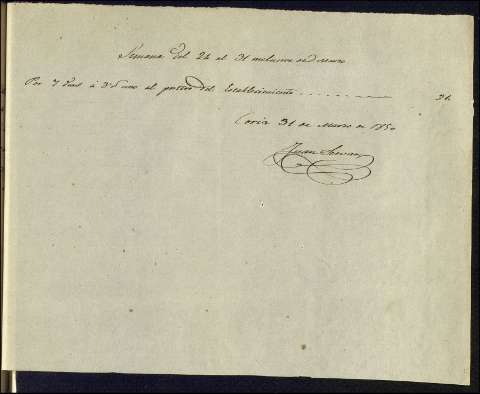 Semana del 24 al 31 inclusive de Marzo
Por 7 dias á 3 d uno al potro del Establecimiento . . . . . . . . 21.
Coria 31 de Marzo de 1850
Juan